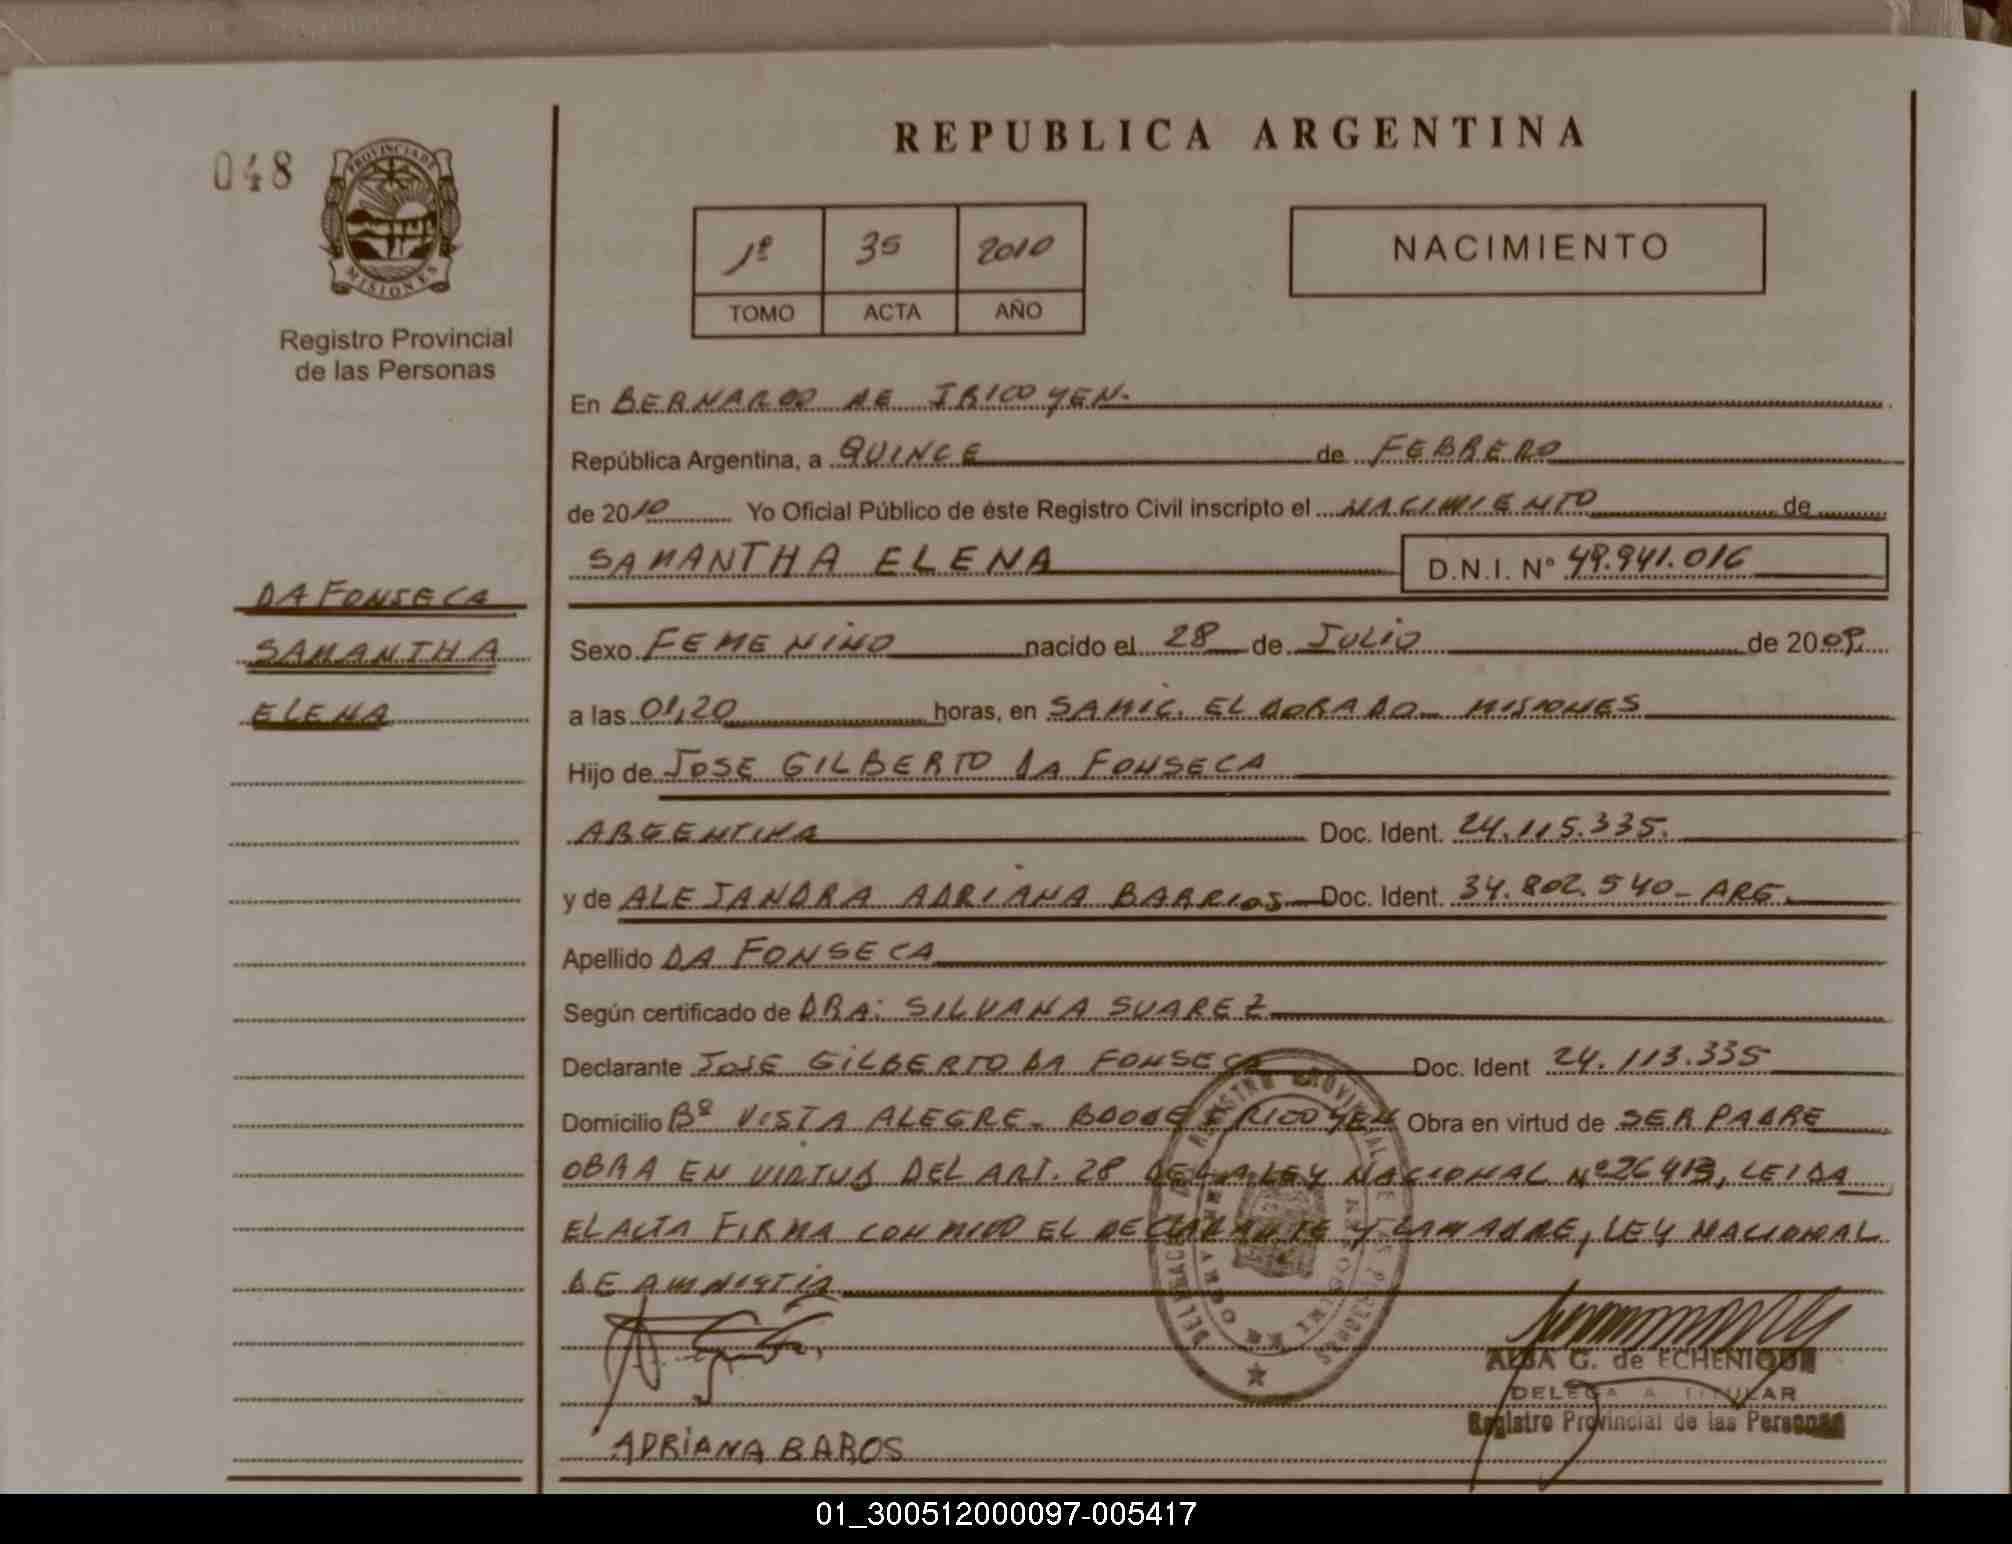 REPUBLICA ARGENTINA
048
PROVINCIA DE
MISIONES
Registro Provincial
de las Personas
1º 35 2010
TOMO ACTA AÑO
NACIMIENTO
En BERNARDO DE IRIGOYEN.
República Argentina, a QUINCE de FEBRERO
de 2010 Yo Oficial Público de éste Registro Civil inscripto el NACIMIENTO de
SAMANTHA ELENA D.N.I. Nº 49.941.016
DA FONSECA
SAMANTHA
ELENA
Sexo FEMENINO nacido el 28 de JULIO de 2009.
a las 01,20 horas, en SAMIC. ELDORADO - MISIONES
Hijo de JOSE GILBERTO DA FONSECA
ARGENTINA Doc. Ident. 24.115.335.
y de ALEJANDRA ADRIANA BARRIOS Doc. Ident. 34.802.540 - ARG.
Apellido DA FONSECA
Según certificado de DRA: SILVANA SUAREZ
Declarante JOSE GILBERTO DA FONSECA Doc. Ident 24.113.335
Domicilio Bº VISTA ALEGRE - BDO DE IRIGOYEN Obra en virtud de SER PADRE
OBRA EN VIRTUD DEL ART. 28 DE LA LEY NACIONAL Nº 26413, LEIDA
EL ACTA FIRMA CONMIGO EL DECLARANTE Y LA MADRE, LEY NACIONAL
DE AMNISTIA
DELEGACION REGISTRO PROVINCIAL DE LAS PERSONAS
ALBA G. de ECHENIQUE
DELEGADA TITULAR
Registro Provincial de las Personas
ADRIANA BAROS
01_300512000097-005417